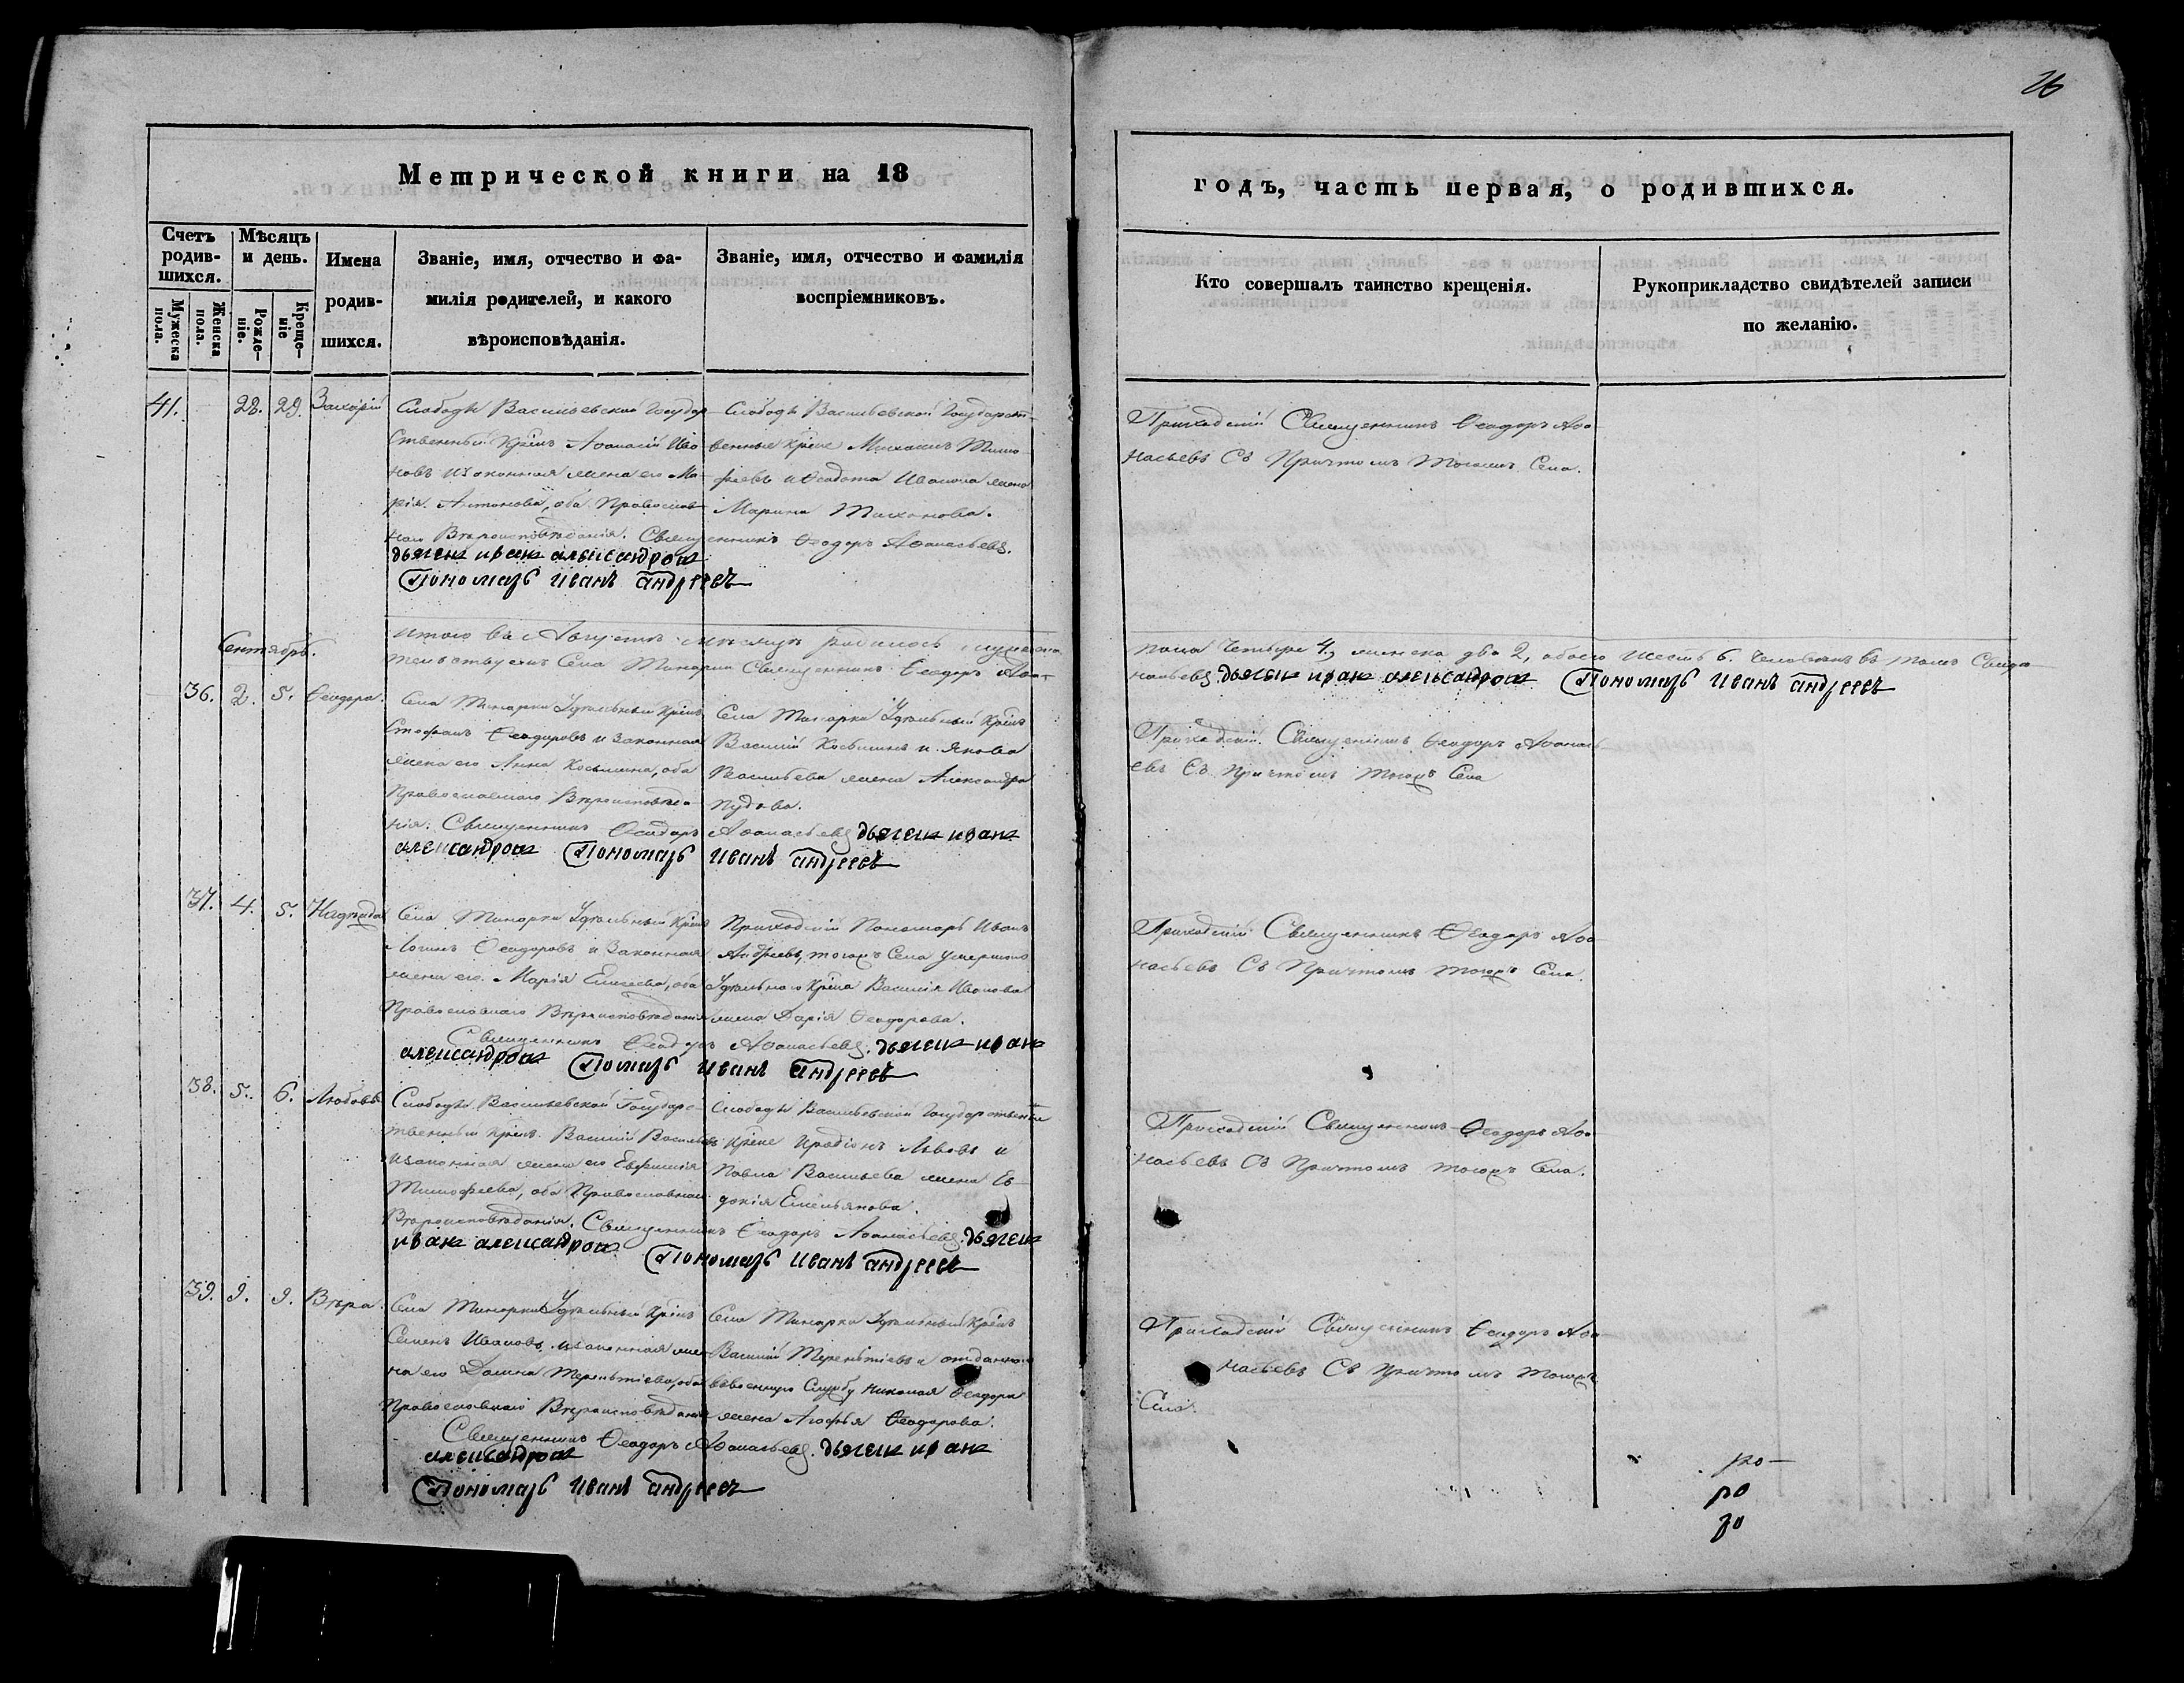 26
Метрической книги на 18
годъ, часть первая, о родившихся.
Счетъ родив-шихся.
Мужеска пола.
Женска пола.
Мѣсяцъ и день.
Рожде-ніе.
Креще-ніе
Имена родив-шихся.
Званіе, имя, отчество и фа-
милія родителей, и какого
вѣроисповѣданія.
Званіе, имя, отчество и фамилія
воспріемниковъ.
Кто совершалъ таинство крещенія.
Рукоприкладство свидѣтелей записи
по желанію.
41. 28. 29. Захарій
Слободы Васильевской Государ-
ственный Крѣнъ Аѳанасій Ива
новъ и законная жена его Ма-
рія Антонова, оба Православ
наго Вѣроисповѣданія. Священникъ Ѳеодоръ Аѳанасьевъ.
дьячекъ иванъ александровъ
Пономарь Иванъ Андреевъ
Слободы Васильевской Государст-
венные Крѣне Михаилъ Тимо
феевъ и Ѳедота Иванова жена
Марина Тихонова.
Приходскій Священникъ Ѳеодоръ Аѳа
насьевъ Съ Причтомъ тогожъ Села.
Итого въ Августѣ мѣсяцѣ родилось мужеска
пола Четыре 4, женска два 2, обоего Шесть 6. Человѣкъ въ томъ Свидѣ
тельствуемъ Села Тимарки Священникъ Ѳеодоръ Аѳа-
насьевъ. дьячекъ иванъ александровъ Пономарь Иванъ Андреевъ
Сентябрь.
36. 2. 5. Ѳеодора.
Села Тимарки Удѣльный Крѣнъ
Стефанъ Ѳеодоровъ и Законная
жена его Анна Косьмина, оба
Православнаго Вѣроисповѣда
нія. Священникъ Ѳеодоръ Аѳанасьевъ дьячекъ иванъ
александровъ Пономарь Иванъ Андреевъ
Села Тимарки Удѣльный Крѣнъ
Василій Косьминъ и Якова
Васильева жена Александра
Пудова.
Приходскій Священникъ Ѳеодоръ Аѳанась
евъ Съ Причтомъ Тогожъ Села
37. 4. 5. Надежда
Села Тимарки Удѣльный Крѣнъ
Логинъ Ѳеодоровъ и Законная
жена его Марія Елисеева, оба
Православнаго Вѣроисповѣданія
Священникъ Ѳеодоръ Аѳанасьевъ. дьячекъ иванъ
александровъ Помарь Иванъ Андреевъ
Приходскій Пономарь Иванъ
Андреевъ, тогожъ Села умершаго
Удѣльнаго Крѣна Василія Иванова
жена Дарія Ѳеодорова.
Приходскій Священникъ Ѳеодоръ Аѳа
насьевъ Съ Причтомъ тогожъ Села.
38. 5. 6. Любовь
Слободы Васильевской Государс-
твенный Крѣнъ Василій Васильевъ
и законная жена его Евфимія
Тимофеева, оба Православнаго
Вѣроисповѣданія. Священникъ Ѳеодоръ Аѳанасьевъ. дьячекъ
иванъ александровъ Пономарь Иванъ Андреевъ
Слободы Васильевской Государственные
Крѣне Иродіонъ Львовъ и
Павла Васильева жена Ев-
докія Емельянова.
Приходскій Священникъ Ѳеодоръ Аѳа
насьевъ Съ Причтомъ тогожъ Села.
39. 9. 9. Вѣра.
Села Тимарки Удѣльный Крѣнъ
Семенъ Ивановъ, и законная же-
на его Домна Терентіева, оба
Православнаго Вѣроисповѣданія
Священникъ Ѳеодоръ Аѳанасьевъ. дьячекъ иванъ
александровъ
Пономарь Иванъ Андреевъ
Села Тимарки Удѣльный Крѣнъ
Василій Терентіевъ и отданнаго
въ военную Службу Николая Ѳеодора
жена Агофья Ѳеодорова.
Приходскій Священникъ Ѳеодоръ Аѳа
насьевъ Съ Причтомъ Тогожъ
Села.